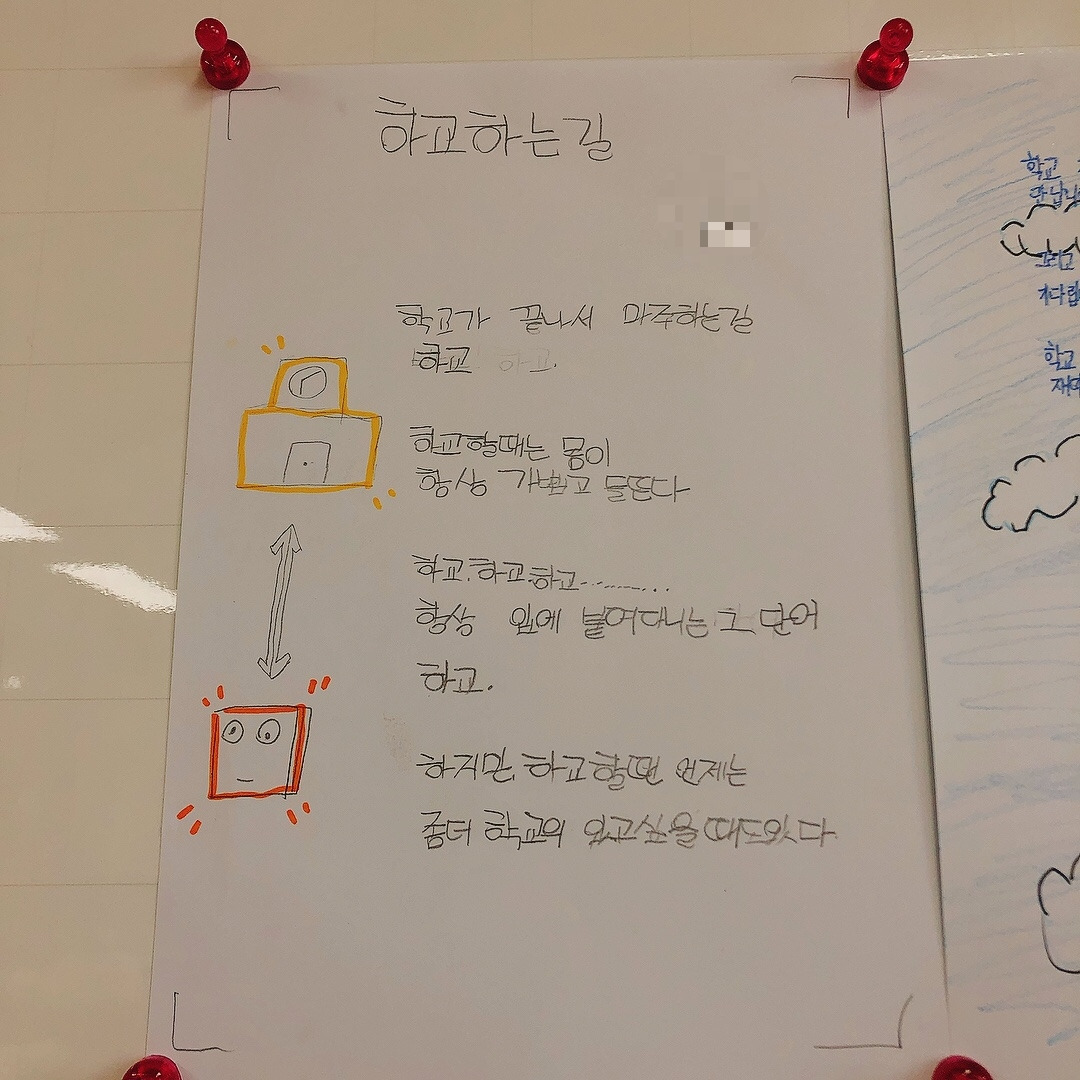 하교하는길
학교가 끝나서 마주하는길
하교 하교.
하교할때는 몸이
항상 가볍고 들뜬다
하교.하교.하교............
항상 입에 붙어다니는 그 단어
하교.
하지만, 하교할땐 언제는
좀더 학교의 있고싶을때도있다
학교
만납니
그리고
기다립
학교